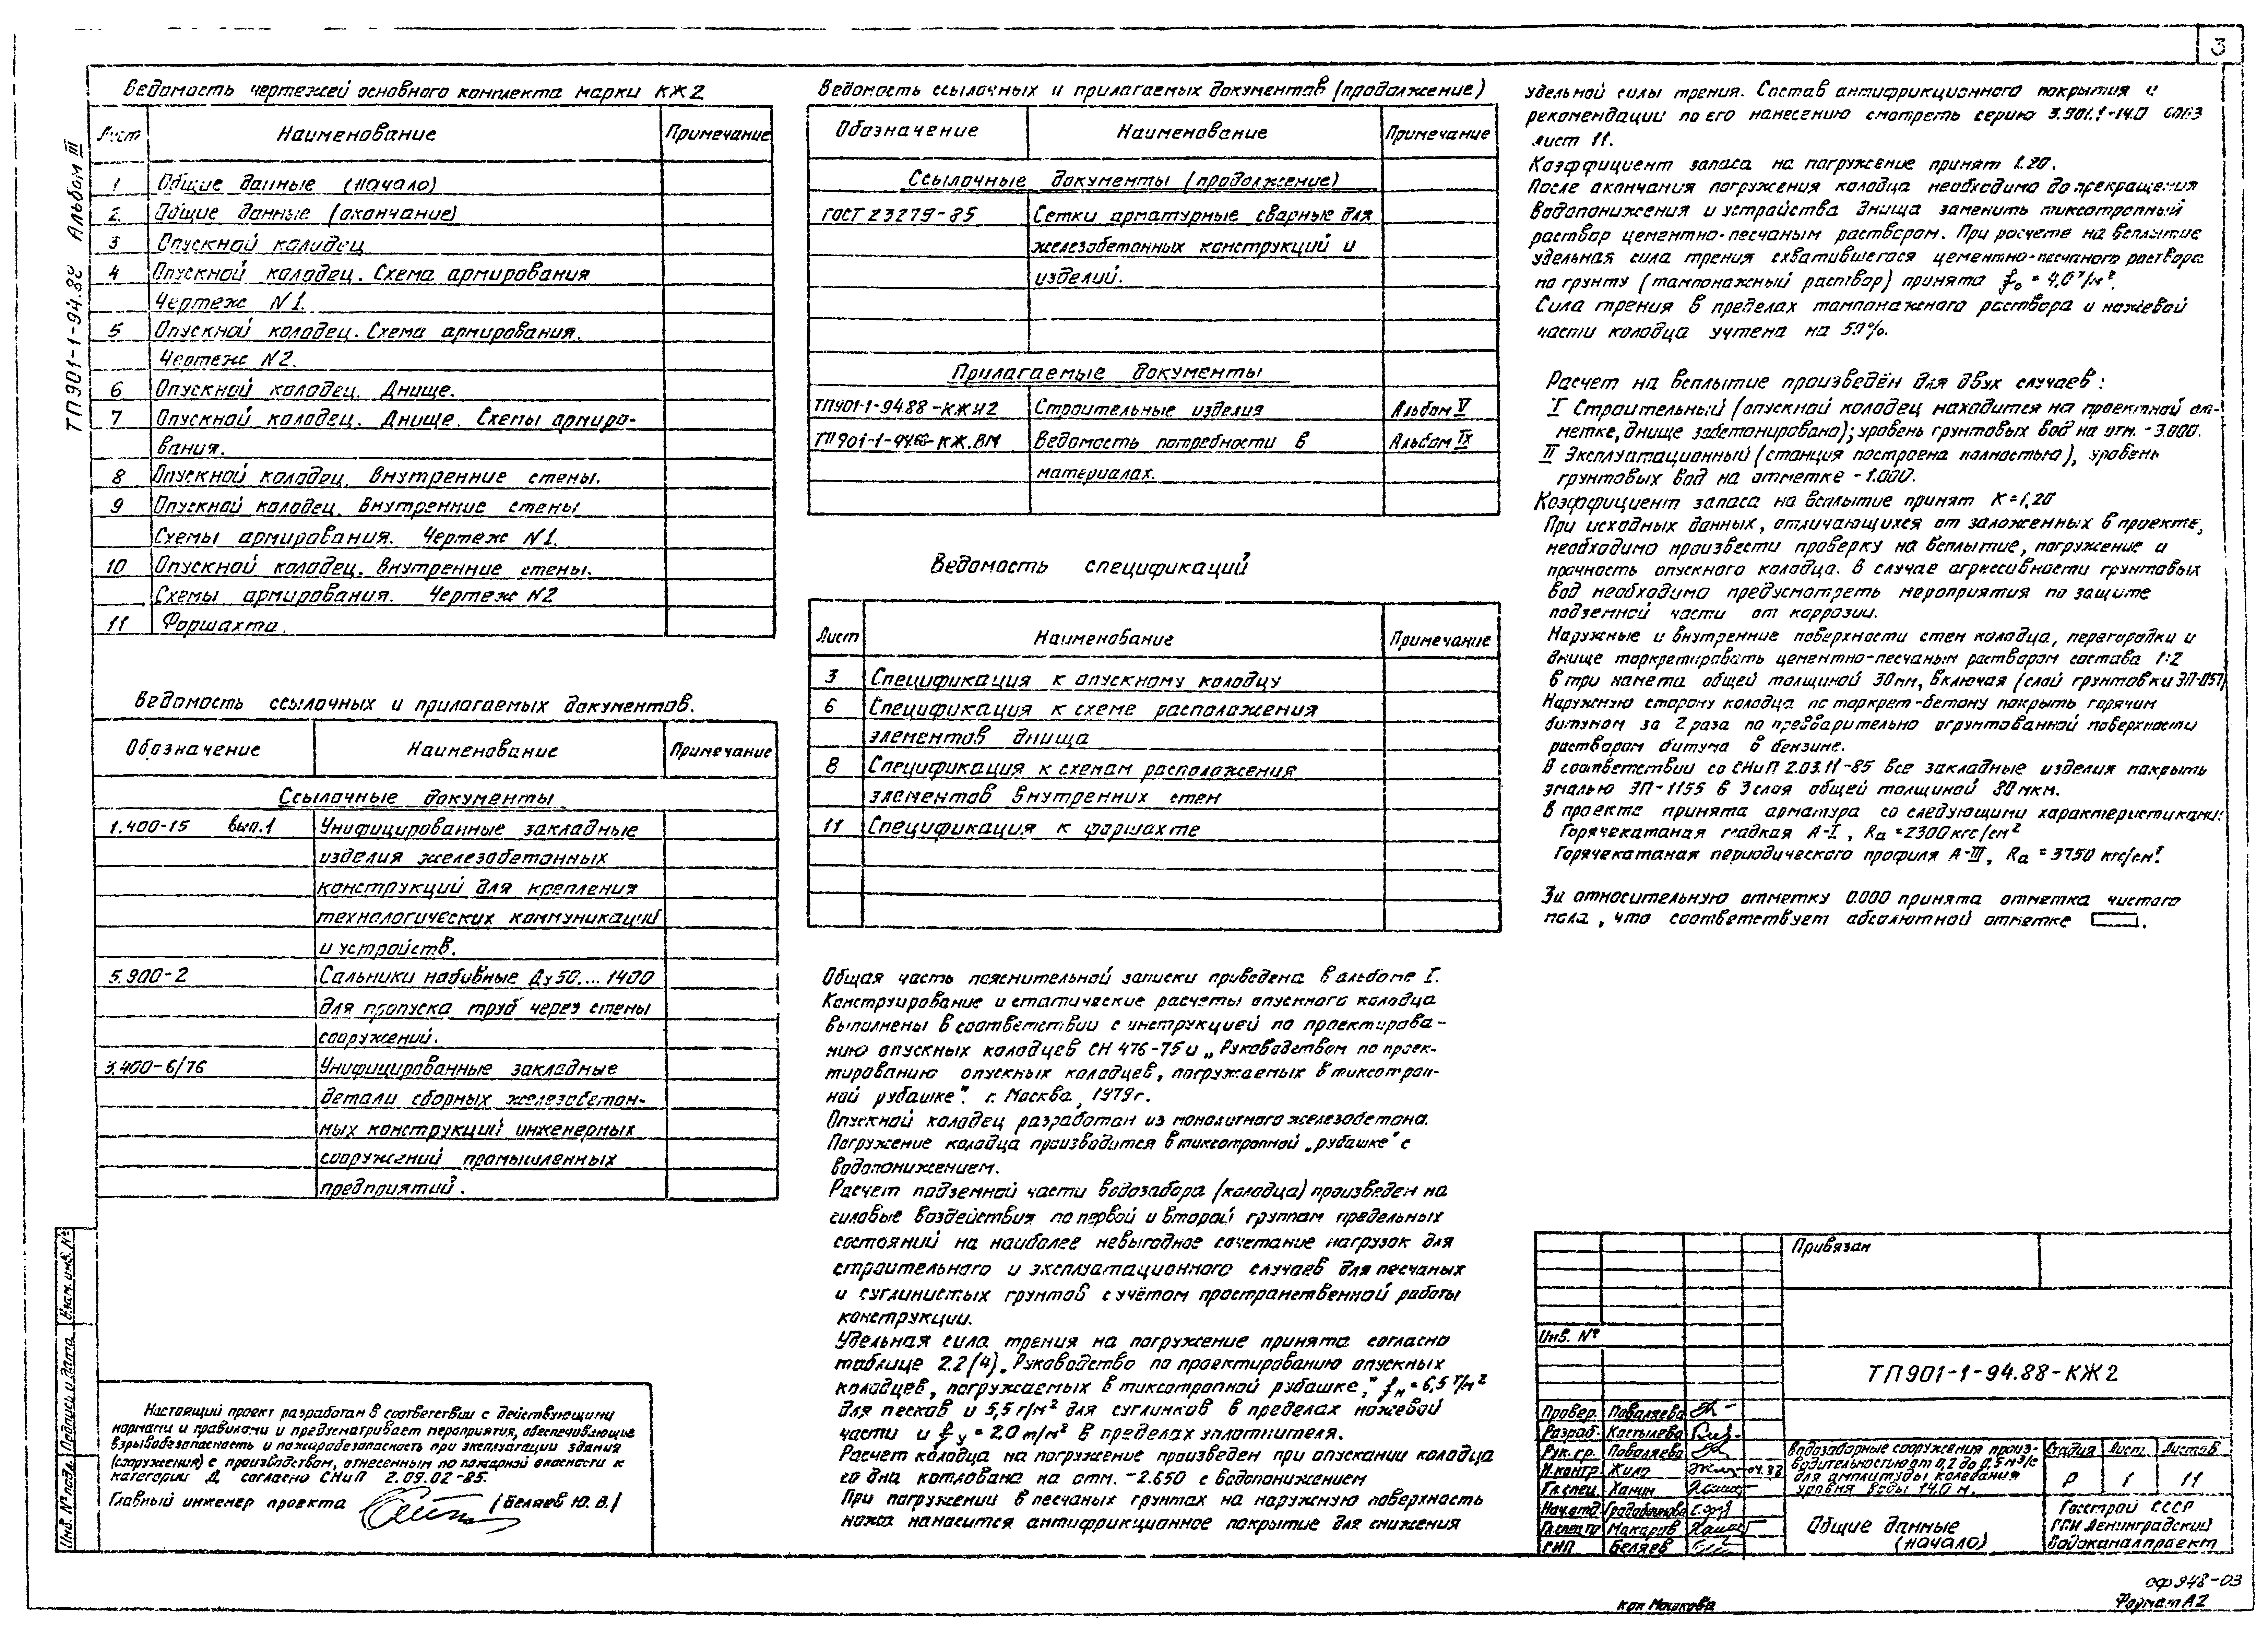 3
ТП901-1-94.88 Альбом III
Ведомость чертежей основного комплекта марки КЖ2
Лист Наименование Примечание
1 Общие данные (начало)
2 Общие данные (окончание)
3 Опускной колодец
4 Опускной колодец. Схема армирования
Чертеж N1.
5 Опускной колодец. Схема армирования.
Чертеж N2.
6 Опускной колодец. Днище.
7 Опускной колодец. Днище. Схемы армиро-
вания.
8 Опускной колодец. Внутренние стены.
9 Опускной колодец. Внутренние стены
Схемы армирования. Чертеж N1.
10 Опускной колодец. Внутренние стены.
Схемы армирования. Чертеж N2
11 Форшахта.
Ведомость ссылочных и прилагаемых документов.
Обозначение Наименование Примечание
Ссылочные документы
1.400-15 вып.1 Унифицированные закладные
изделия железобетонных
конструкций для крепления
технологических коммуникаций
и устройств.
5.900-2 Сальники набивные Ду50...1400
для пропуска труб через стены
сооружений.
3.400-6/76 Унифицированные закладные
детали сборных железобетон-
ных конструкций инженерных
сооружений промышленных
предприятий.
Настоящий проект разработан в соответствии с действующими
нормами и правилами и предусматривает мероприятия, обеспечивающие
взрывобезопасность и пожаробезопасность при эксплуатации здания
(сооружения) с производством, отнесенным по пожарной опасности к
категории Д согласно СНиП 2.09.02-85.
Главный инженер проекта (Беляев Ю.В.)
Инв. № подл. Подпись и дата Взам. инв. №
Ведомость ссылочных и прилагаемых документов (продолжение)
Обозначение Наименование Примечание
Ссылочные документы (продолжение)
ГОСТ 23279-85 Сетки арматурные сварные для
железобетонных конструкций и
изделий.
Прилагаемые документы
ТП901-1-94.88-КЖИ2 Строительные изделия Альбом V
ТП901-1-94.88-КЖ.ВМ Ведомость потребности в Альбом IX
материалах.
Ведомость спецификаций
Лист Наименование Примечание
3 Спецификация к опускному колодцу
6 Спецификация к схеме расположения
элементов днища
8 Спецификация к схемам расположения
элементов внутренних стен
11 Спецификация к форшахте
Общая часть пояснительной записки приведена в альбоме I.
Конструирование и статические расчеты опускного колодца
выполнены в соответствии с инструкцией по проектирова-
нию опускных колодцев СН 476-75 и „Руководством по проек-
тированию опускных колодцев, погружаемых в тиксотроп-
ной рубашке". г. Москва, 1979г.
Опускной колодец разработан из монолитного железобетона.
Погружение колодца производится в тиксотропной „рубашке" с
водопонижением.
Расчет подземной части водозабора (колодца) произведен на
силовые воздействия по первой и второй группам предельных
состояний на наиболее невыгодное сочетание нагрузок для
строительного и эксплуатационного случаев для песчаных
и суглинистых грунтов с учётом пространственной работы
конструкции.
Удельная сила трения на погружение принята согласно
таблице 2.2(4) „Руководство по проектированию опускных
колодцев, погружаемых в тиксотропной рубашке," fн = 6,5 т/м²
для песков и 5,5 т/м² для суглинков в пределах ножевой
части и fу = 2.0 т/м² в пределах уплотнителя.
Расчет колодца на погружение произведен при опускании колодца
со дна котлована на отм. -2.650 с водопонижением
При погружении в песчаных грунтах на наружную поверхность
ножа наносится антифрикционное покрытие для снижения
удельной силы трения. Состав антифрикционного покрытия и
рекомендации по его нанесению смотреть серию 3.901.1-14.0
лист 11.
Коэффициент запаса на погружение принят 1.20.
После окончания погружения колодца необходимо до прекращения
водопонижения и устройства днища заменить тиксотропный
раствор цементно-песчаным раствором. При расчете на всплытие
удельная сила трения схватившегося цементно-песчаного раствора
по грунту (тампонажный раствор) принята fо = 4,0 т/м².
Сила трения в пределах тампонажного раствора и ножевой
части колодца учтена на 50%.
Расчет на всплытие произведён для двух случаев:
I Строительный (опускной колодец находится на проектной от-
метке, днище забетонировано); уровень грунтовых вод на отм. -3.000.
II Эксплуатационный (станция построена полностью), уровень
грунтовых вод на отметке -1.000.
Коэффициент запаса на всплытие принят К=1,20
При исходных данных, отличающихся от заложенных в проекте,
необходимо произвести проверку на всплытие, погружение и
прочность опускного колодца. В случае агрессивности грунтовых
вод необходимо предусмотреть мероприятия по защите
подземной части от коррозии.
Наружные и внутренние поверхности стен колодца, перегородки и
днище торкретировать цементно-песчаным раствором состава 1:2
в три намета общей толщиной 30мм, включая (слой грунтовки ЭП-057)
Наружную сторону колодца по торкрет-бетону покрыть горячим
битумом за 2 раза по предварительно огрунтованной поверхности
раствором битума в бензине.
В соответствии со СНиП 2.03.11-85 все закладные изделия покрыть
эмалью ЭП-1155 в 3 слоя общей толщиной 80мкм.
В проекте принята арматура со следующими характеристиками:
Горячекатаная гладкая А-I, Rа = 2300 кгс/см²
Горячекатаная периодического профиля А-III, Rа = 3750 кгс/см².
За относительную отметку 0.000 принята отметка чистого
пола, что соответствует абсолютной отметке .
Привязан
Инв. №
ТП901-1-94.88-КЖ2
Провер. Поваляева
Разраб. Костылева
Рук. гр. Поваляева
Н.контр Жило 04.88
Гл.спец. Ханин
Нач.отд
Гл.спец Макаров
ГИП Беляев
Водозаборные сооружения произ-
водительностью от 0,2 до 0,5 м3/с
для амплитуды колебания
уровня воды 14.0 м.
Стадия Лист Листов
Р 1 11
Общие данные
(начало)
Госстрой СССР
ГПИ Ленинградский
Водоканалпроект
сф948-03
Коп Мошкова Формат А2